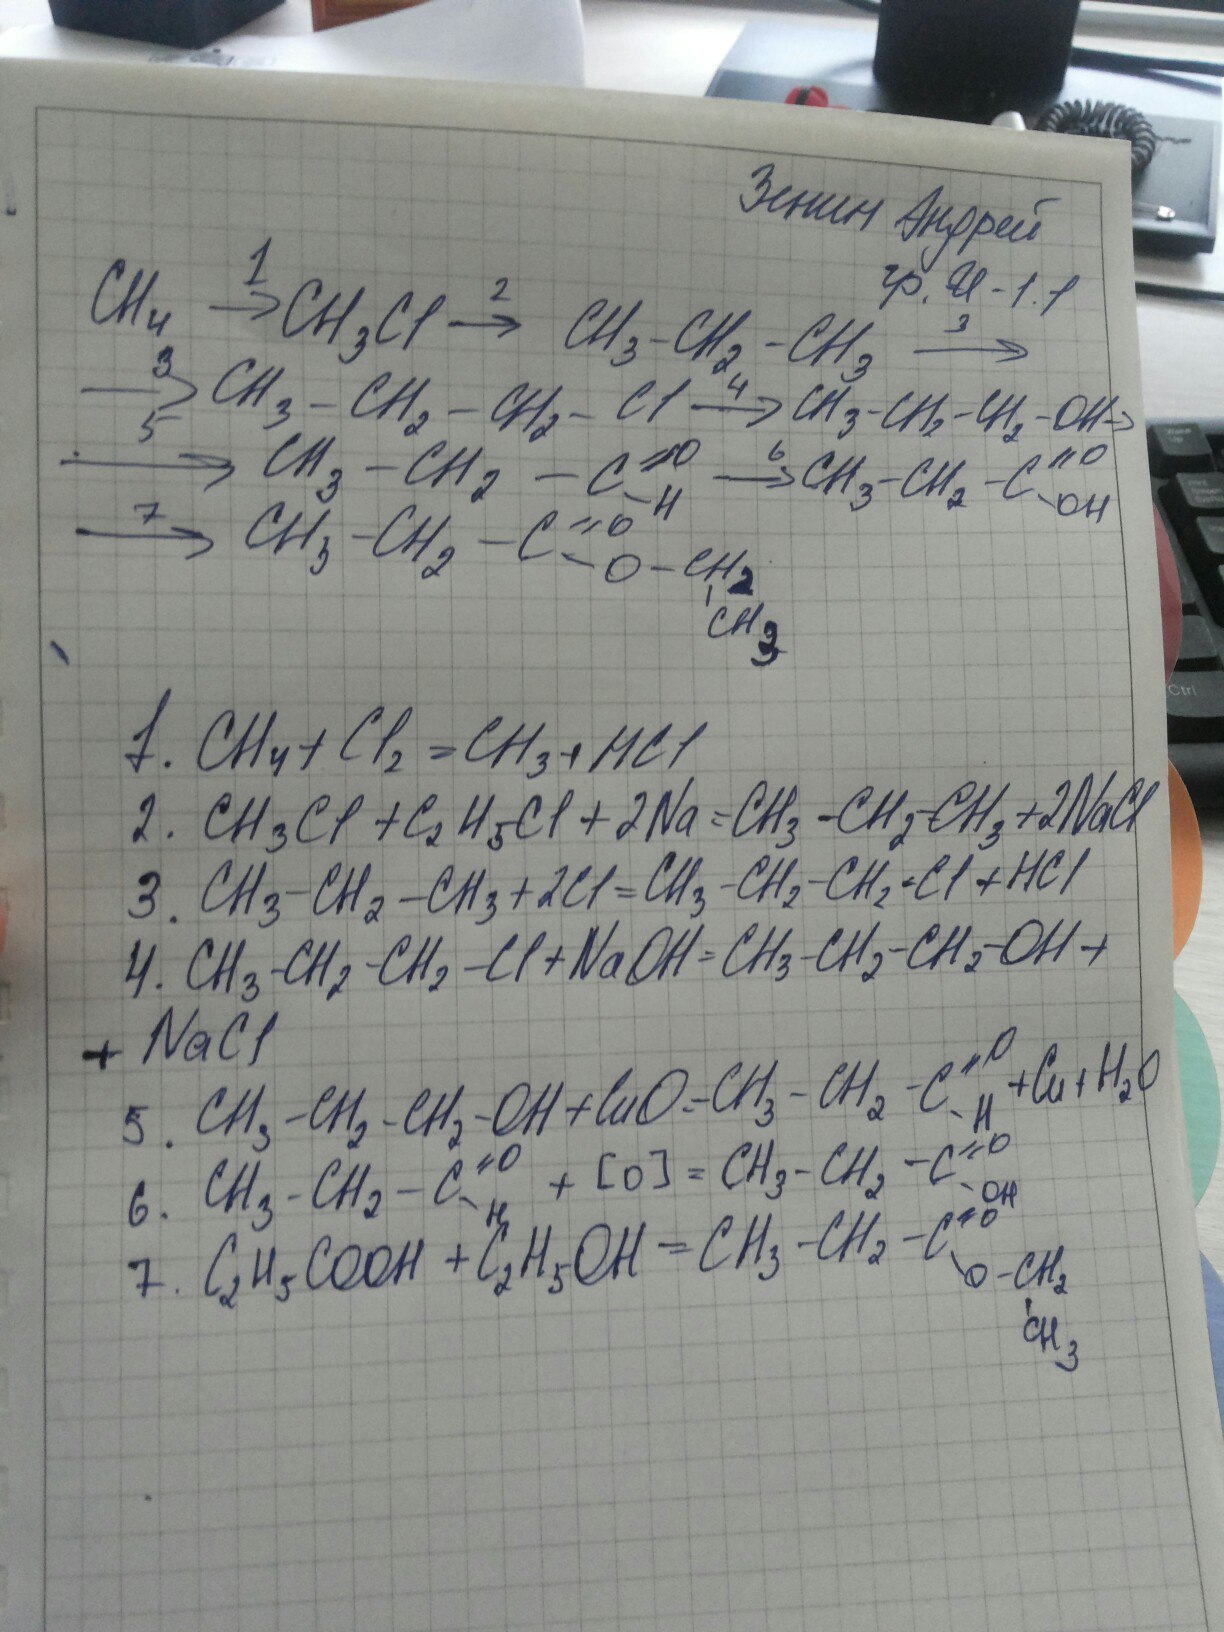 Зенин Андрей
гр. И-1.1
CH4 →1 CH3Cl →2 CH3-CH2-CH3 →3
→3 CH3-CH2-CH2-Cl →4 CH3-CH2-CH2-OH→
→5 CH3-CH2-C(=O)-H →6 CH3-CH2-C(=O)-OH
→7 CH3-CH2-C(=O)-O-CH2-CH3
1. CH4+Cl2=CH3+HCl
2. CH3Cl+C2H5Cl+2Na=CH3-CH2-CH3+2NaCl
3. CH3-CH2-CH3+2Cl=CH3-CH2-CH2-Cl+HCl
4. CH3-CH2-CH2-Cl+NaOH=CH3-CH2-CH2-OH+
+NaCl
5. CH3-CH2-CH2-OH+CuO=CH3-CH2-C(=O)-H+Cu+H2O
6. CH3-CH2-C(=O)-H+[O]=CH3-CH2-C(=O)-OH
7. C2H5COOH+C2H5OH=CH3-CH2-C(=O)-O-CH2-CH3
Ctrl